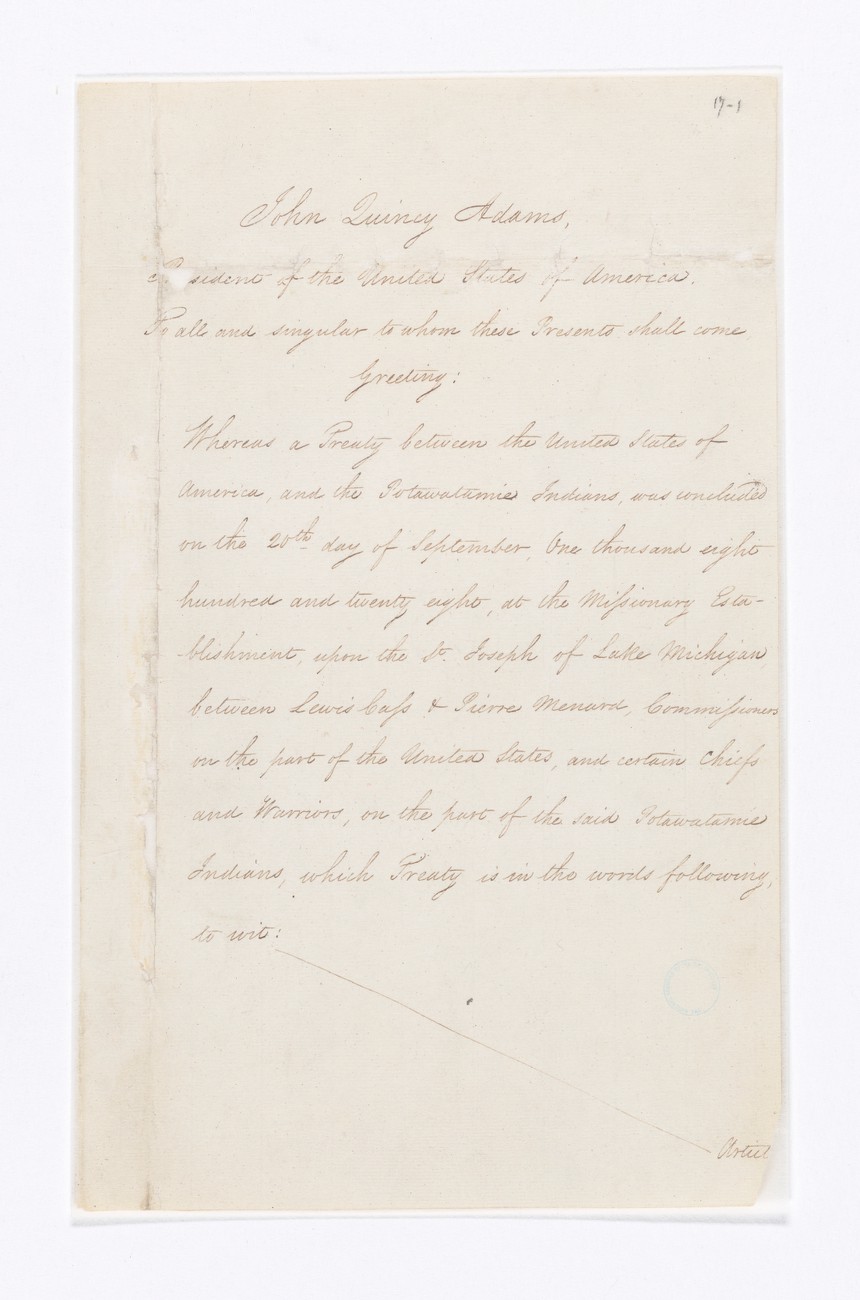 17-1
John Quincy Adams,
President of the United States of America.
To all and singular to whom these Presents shall come
Greeting:
Whereas a Treaty between the United States of
America, and the Potawatamie Indians, was concluded
on the 20th day of September, One thousand eight
hundred and twenty eight, at the Missionary Esta-
blishment, upon the St. Joseph of Lake Michigan,
between Lewis Cass & Pierre Menard, Commissioners
on the part of the United States, and certain Chiefs
and Warriors, on the part of the said Potawatamie
Indians, which Treaty is in the words following,
to wit:
Articl